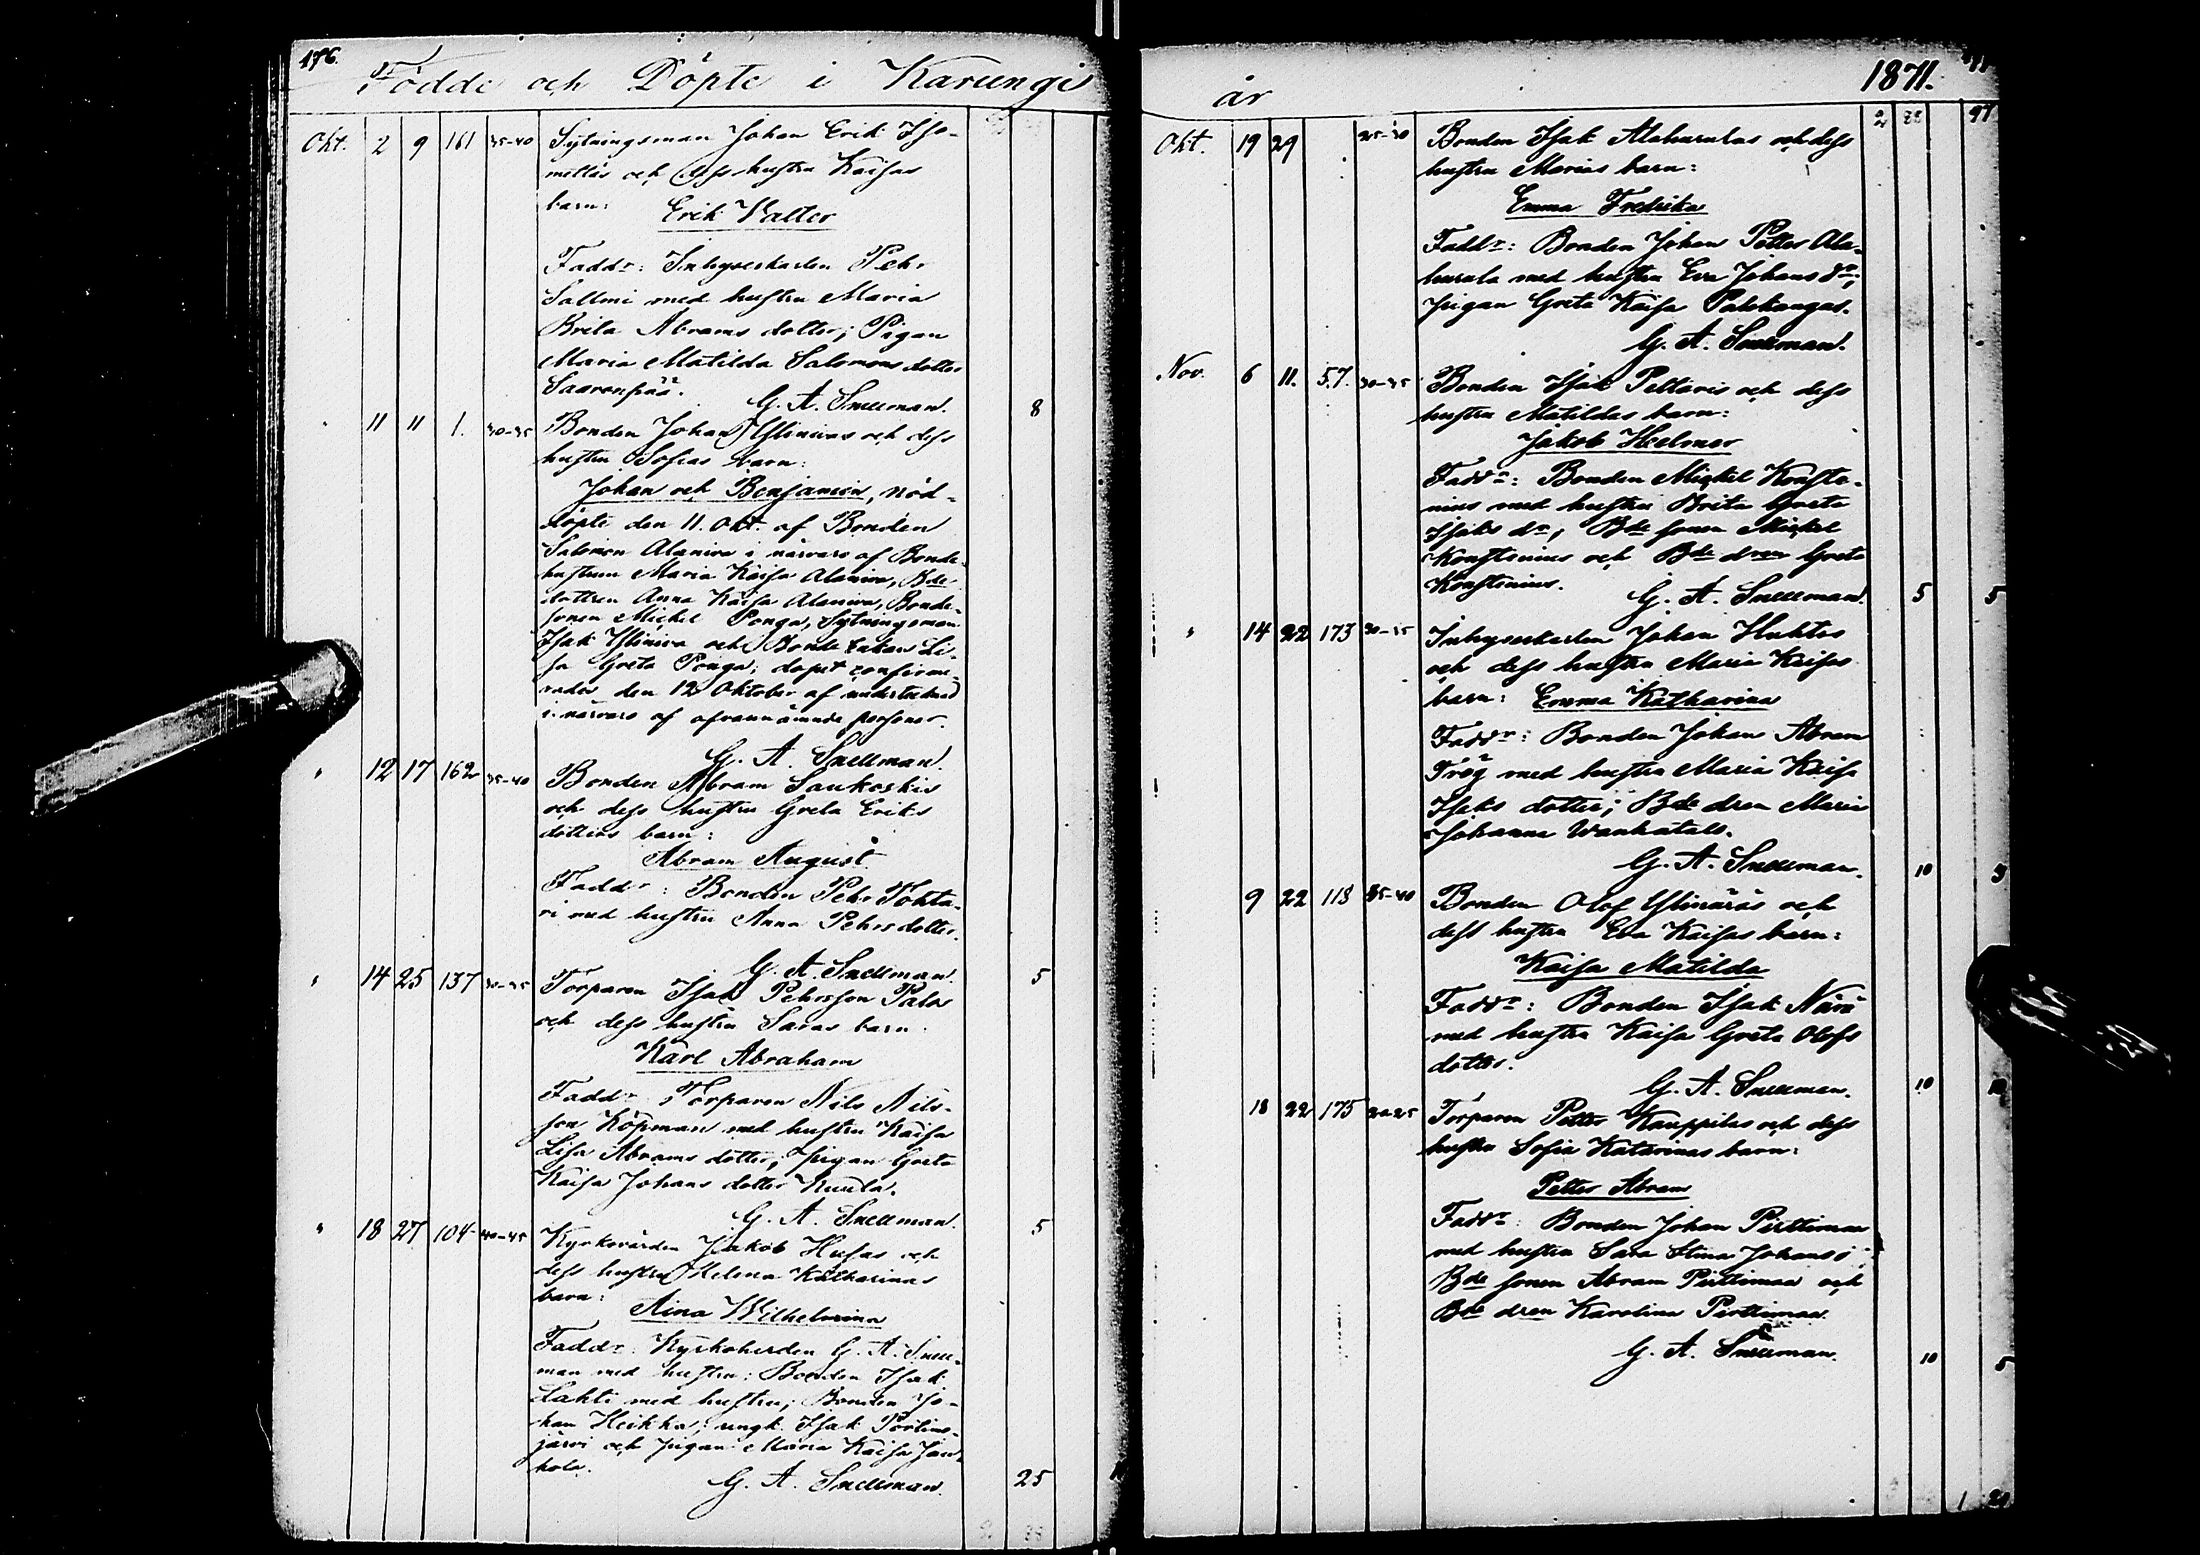 176.
Födde och Döpte i Karungi
Okt. 2 9 161 35-40 Sytningsman Johan Erik Iso-
mettäs och dess hustru Kaisas
barn: Erik Valter
Faddr: Inhyseskarlen Pehr
Sallmi med hustru Maria
Brita Abrams dotter; Pigan
Maria Matilda Salomons dotter
Saaronpää.
G. A. Snellman. 8
" 11 11 1. 30-35 Bonden Johan Ylinivas och dess
hustru Sofias barn:
Johan och Benjamin, nöd-
döpte den 11. Okt. af Bonden
Salomon Alaniva i närvaro af Bonde-
hustrun Maria Kaisa Alaniva, Bde
dottren Anna Kaisa Alaniva, Bonde-
sonen Mickel Ponga, Sytningsman
Isak Yliniva och Bonde Enkan Li-
sa Greta Ponga; dopet confirme-
rades den 12 Oktober af undertecknad
i närvaro af ofvannämnde personer.
G. A. Snellman.
" 12 17 162 35-40 Bonden Abram Saukoskis
och dess hustru Greta Eriks
dotters barn:
Abram August
Faddr: Bonden Pehr Tohta-
ri med hustru Anna Pehrs dotter.
G. A. Snellman. 5
" 14 25 137 30-35 Torparen Isak Pehrsson Palos
och dess hustru Saras barn
Karl Abraham
Faddr Torparen Nils Nils-
son Köpman med hustru Kaisa
Lisa Abrams dotter; pigan Greta
Kaisa Johans dotter Kuula.
G. A. Snellman. 5
" 18 27 104 40-45 Kyrkovärden Jakob Husas och
dess hustru Helena Katharinas
barn: Aina Wilhelmina
Faddr: Kyrkoherden G. A. Snell-
man med hustru; Bonden Isak
Lahti med hustru; Bonden Jo-
han Heikka; ungk. Isak Portimo-
järvi och pigan Maria Kaisa Jan-
hola.
G. A. Snellman. 25
år 1871.
Okt. 19 29 25-30 Bonden Isak Alahurulas och dess
hustru Marias barn:
Emma Fredrika
Faddr: Bonden Johan Petter Ala-
hurula med hustru Eva Johans dr;
pigan Greta Kaisa Palokangas.
G. A. Snellman.
Nov. 6 11. 57. 30-35 Bonden Isak Peltaris och dess
hustru Matildas barn:
Jakob Hjelmer
Faddr: Bonden Mickel Konste-
nius med hustru Brita Greta
Isaks dr, Bde sonen Mickel
Konstenius och Bde dren Greta
Konstenius.
G. A. Snellman. 5 5
" 14 22 173 30-35 Inhyseskarlen Johan Huhtas
och dess hustru Maria Kaisas
barn: Emma Katharina
Faddr: Bonden Johan Abram
Frög med hustru Maria Kaisa
Isaks dotter; Bde dren Maria
Johanna Wanhatalo.
G. A. Snellman. 10 5
9 22 118 35-40 Bonden Olof Ylinäräs och
dess hustru Eva Kaisas barn:
Kaisa Matilda
Faddr: Bonden Isak Närä
med hustru Kaisa Greta Olofs
dotter.
G. A. Snellman. 10
18 22 175 20-25 Torparen Petter Kauppilas och dess
hustru Sofia Katarinas barn:
Petter Abram
Faddr: Bonden Johan Pirttimaa
med hustru Sara Stina Johans
Bde sonen Abram Pirttimaa och
Bde dren Karolina Pirttimaa
G. A. Snellman. 10 5